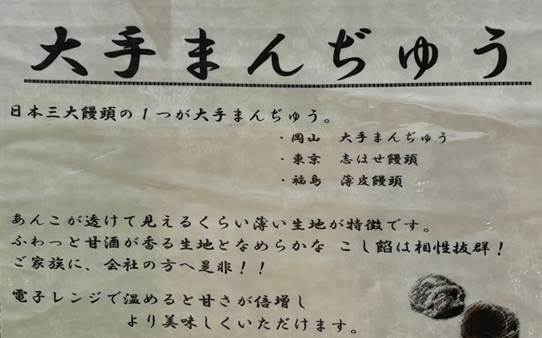 大手まんぢゅう
日本三大饅頭の1つが大手まんぢゅう。
・岡山 大手まんぢゅう
・東京 志ほせ饅頭
・福島 薄皮饅頭
あんこが透けて見えるくらい薄い生地が特徴です。
ふわっと甘酒が香る生地となめらかな こし餡は相性抜群!
ご家族に、会社の方へ是非!!
電子レンジで温めると甘さが倍増し
より美味しくいただけます。